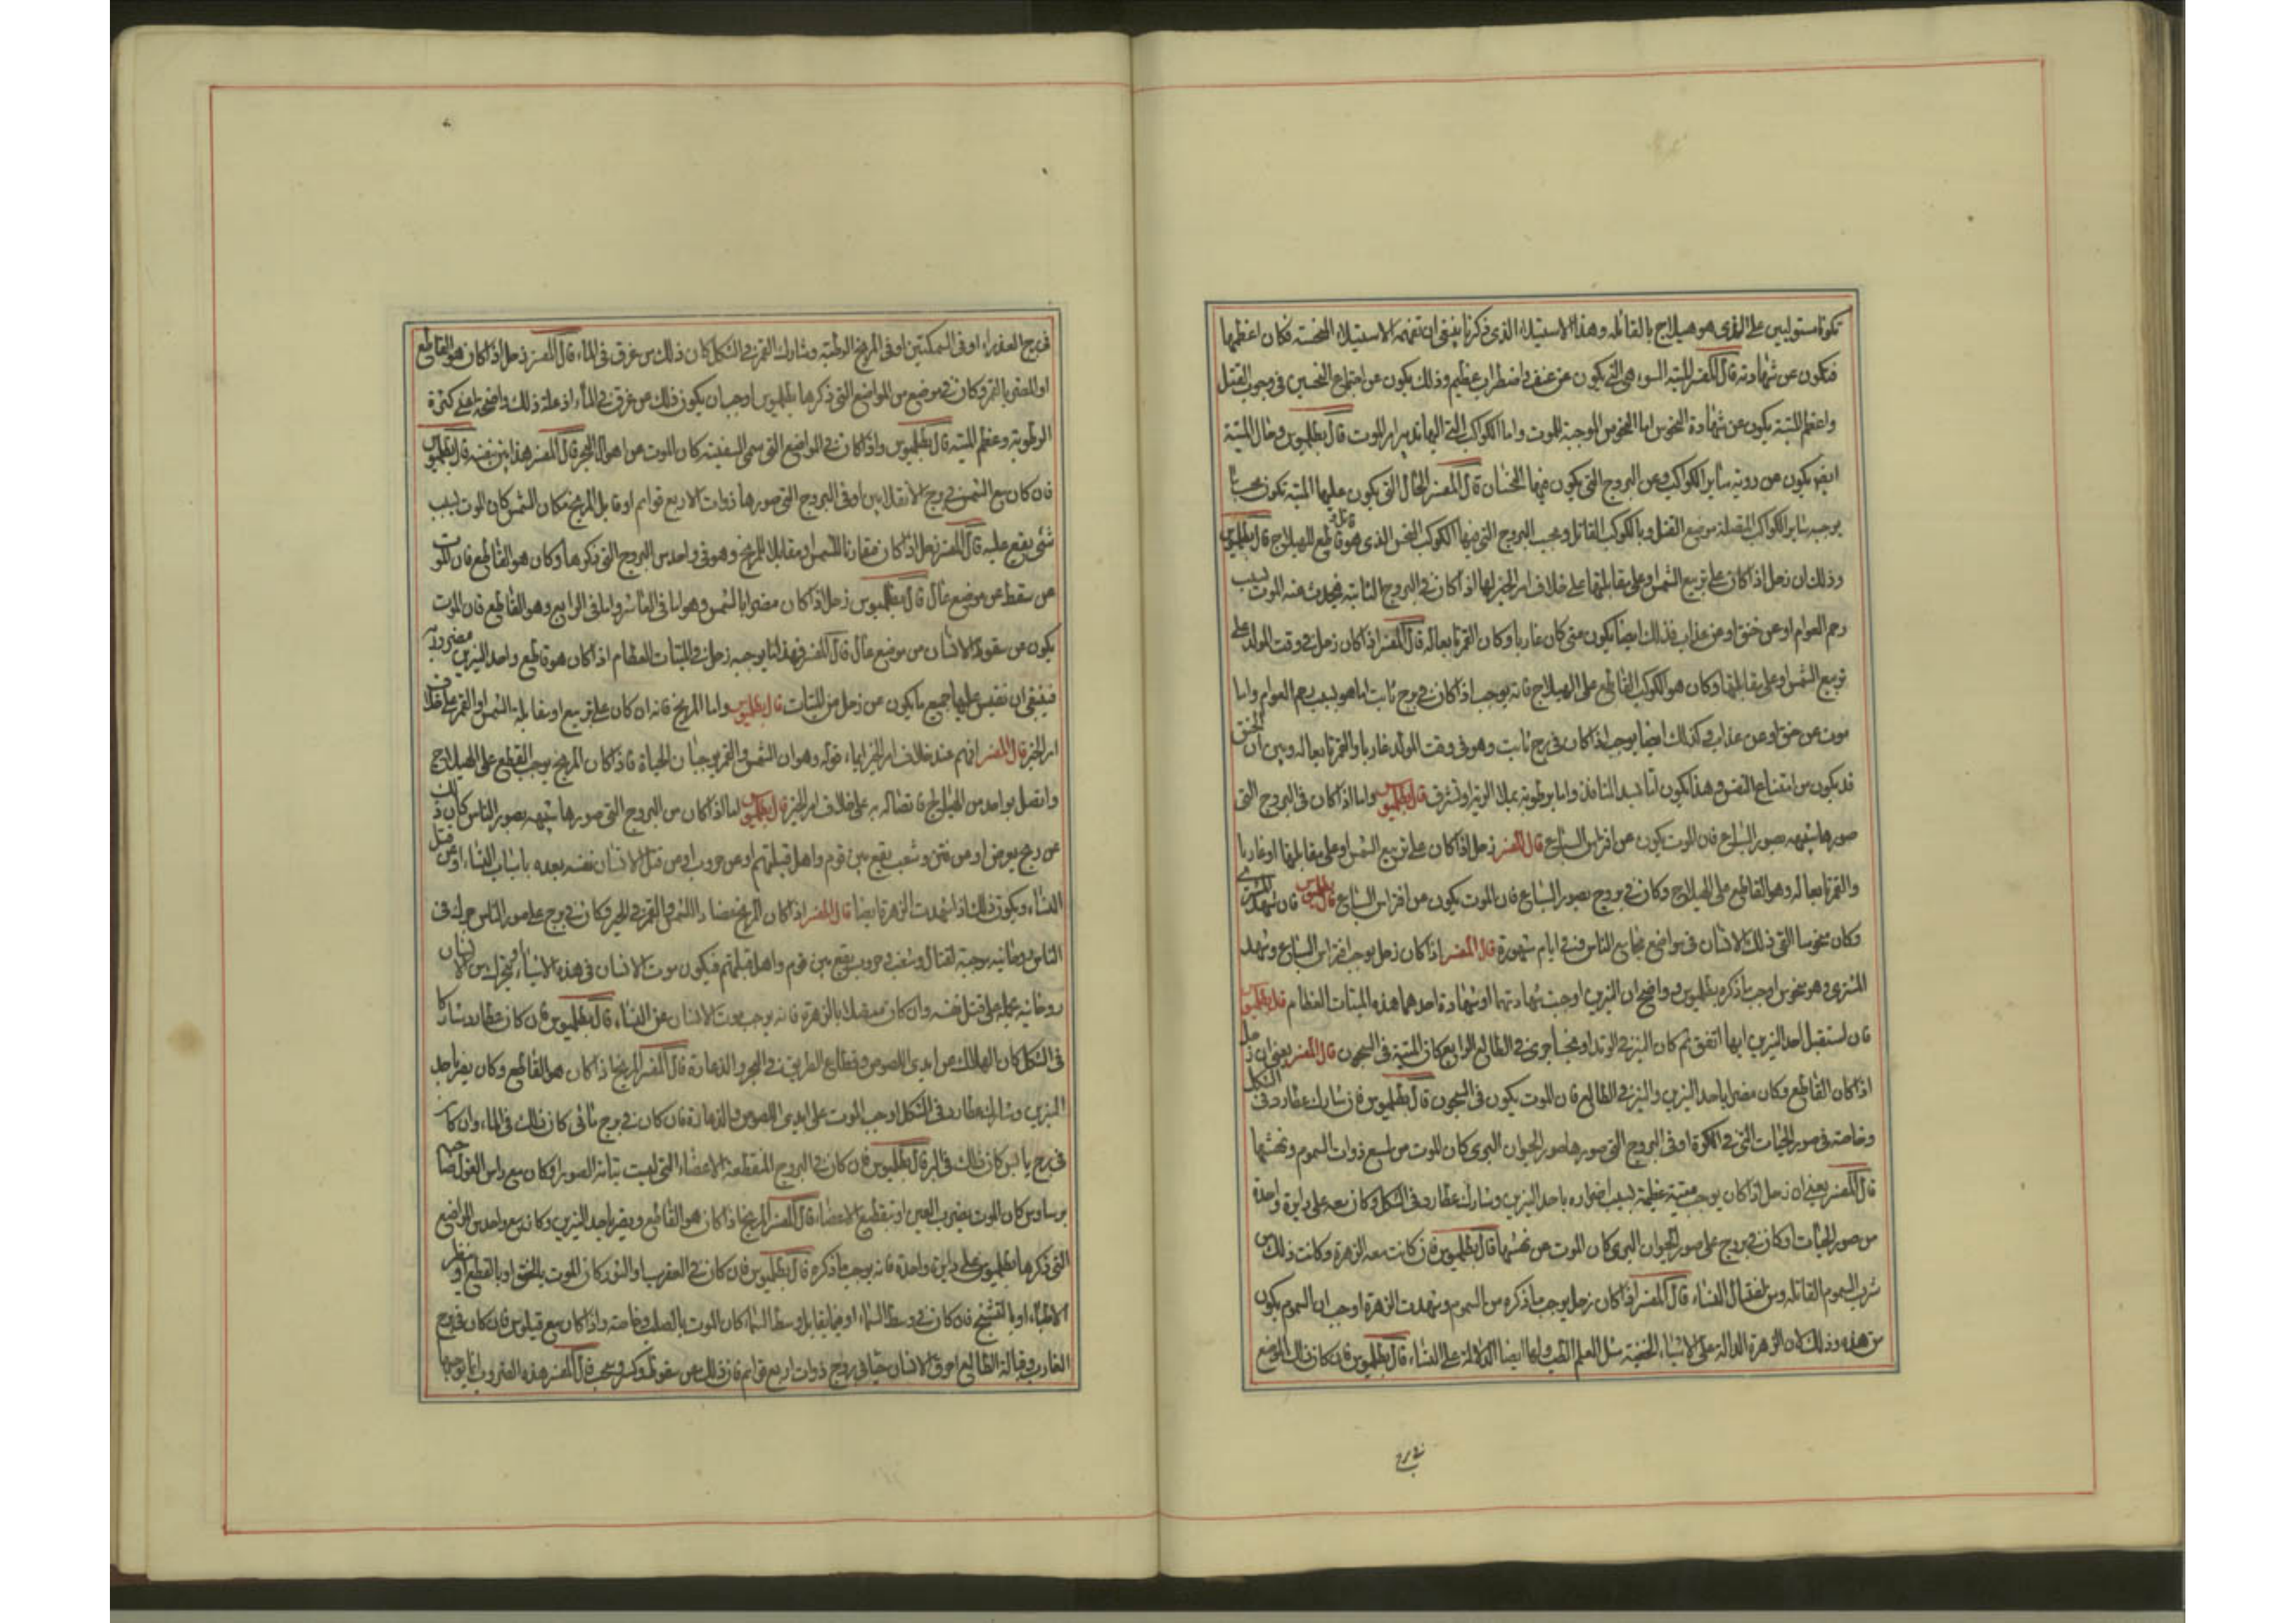 تكونا مستوليين على الذى هو هيلاج بالقاتله وهذا الاستيلاء الذى ذكرنا ينبغى ان تفهمه الاستيلاء النحسته فكان اعظمها
فتكون عن شهادته قال المفسر الميتة السوء هى التى يكون عن عنف واضطراب عظيم وذلك يكون عن اجتماع النحسين فى وجوب القتل
واعظم الميتة يكون عن شهادة النحوس اما النحوس الموجبة للموت واما الكواكب التى اليها تدبير امر الموت قال بطلميوس وحال الميتة
ايضا يكون من رويه سائر الكواكب وعن البروج التى يكون فيها النحسان قال المفسر الحال التى يكون عليها الميتة تكون بحسب ما
يوجبه سائر الكواكب المتصلة بموضع القتل وبالكوكب القاتل وبحسب البروج التى فيها الكوكب النحس الذى هو قاطع للهيلاج قال بطلميوس
وذلك ان زحل اذا كان على تربيع الشمس او على مقابلتها على خلاف امر الحيز لها اذا كان فى البروج الثابتة فيحدث عنه الموت بسبب
رحم العوام او عن خنق او عن عذاب فذلك ايضا يكون متى كان غاربا وكان القمر تابعا له قال المفسر اذا كان زحل فى وقت المولد على
تربيع الشمس او على مقابلتها وكان هو الكوكب القاطع على الهيلاج فانه يوجب اذا كان فى برج ثابت اما هو بسبب رحم العوام واما
موت عن خنق او عن عذاب وكذلك ايضا يوجب اذا كان فى برج ثابت وهو فى وقت المولد غاربا والقمر تابعا له وبين ان الخنق
قد يكون من امتناع النفس وهذا يكون اما لسد المنافذ واما برطوبة تملا الرية او تشرق قال بطلميوس واما اذا كان فى البروج التى
صورها شبيهه بصور السباع فان الموت يكون عن افتراس السباع قال المفسر زحل اذا كان على تربيع الشمس او على مقابلتها او غاربا
والقمر تابعا له وهو القاطع على الهيلاج وكان فى بروج بصور السباع فان الموت يكون من افتراس السباع قال بطلميوس فان شهد المشترى
وكان منحوسا التى ذلك الانسان فى مواضع مجامع الناس فى ايام مشهورة قال المفسر اذا كان زحل يوجب افتراس السباع وشهد
المشترى وهو منحوس اوجب ما ذكره بطلميوس وواضح ان النيرين اوجبت شهادتهما او شهادة احدهما هذه الميتات العظام قال بطلميوس
فان استقبل احد النيرين ايهما اتفق ثم كان النير فى الوتد او منحسا جرى فى الطالع الرابع كان الميتة فى السجون قال المفسر يعنى ان زحل
اذا كان القاطع وكان مضرا باحد النيرين والنير فى الطالع فان الموت يكون فى السجون قال بطلميوس فان شارك عطارد فى الشكل
وخاصة فى صور الحيات التى فى الكرة او فى البروج التى صورها صور الحيوان البرى كان الموت من لسع ذوات السموم ونهشها
قال المفسر يعنى ان زحل اذا كان يوجب ميتة عظيمة بسبب اضراره باحد النيرين وشارك عطارد فى الشكل وكان معه على دايرة واحدة
من صور الحيات او كان فى بروج على صور الحيوان البرى كان الموت من نهشها قال بطلميوس فان كانت معه الزهرة وكانت ذلك من
شرب السموم القاتله ومن اغتيال النساء قال المفسر اذا كان زحل يوجب ما ذكره من السموم وشهدت الزهرة اوجب ان السموم يكون
من هذه وذلك لان الزهرة الدالة على الاشياء الخفية مثل العلم الطب ولها ايضا الدلالة على النساء قال بطلميوس فان كان ذلك الموضع
فى برج
فى برج العذراء او فى السمكتين او فى البروج الرطبة وشارك القمر فى الشكل كان ذلك من غرق فى الماء قال المفسر زحل اذا كان هو القاطع
او المضر بالقمر وكان فى موضع من المواضع التى ذكرها بطلميوس اوجب ان يكون ذلك من غرق فى الماء اذ علة ذلك واضحة اعنى كثرة
الرطوبة وعظم الميتة قال بطلميوس واذا كان فى المواضع التى تسمى السفينة كان الموت من اهوال البحر قال المفسر هذا بين بنفسه قال بطلميوس
فان كان مع الشمس فى برج الانقلابين او فى البروج التى صورها ذوات الاربع قوايم او قابل المريخ مكان الشمس كان الموت بسبب
شئ يقع عليه قال المفسر زحل اذا كان مقارنا للشمس او مقابلا للمريخ وهو فى واحد من البروج التى ذكرها وكان هو القاطع فان الموت
من سقط من موضع عال قال بطلميوس زحل اذا كان مضرا بالشمس وهو اما فى العاشر واما فى الرابع وهو القاطع فان الموت
يكون من سقوط الانسان من موضع عال قال المفسر فهذا ما يوجبه زحل فى الميتات العظام اذا كان هو قاطع واحد النيرين مضرور به
فينبغى ان تقيس عليها جميع ما يكون عن زحل من الميتات قال بطلميوس واما المريخ فانه ان كان على تربيع او مقابلة الشمس او القمر على خلاف
امر الحيز قال المفسر افهم عند خلاف امر الحيز قوله وهو ان الشمس والقمر يوجبان الحياة فاذا كان المريخ يوجب القطع على الهيلاج
واتصل بواحد من الهيلاج فاتصاله به على خلاف امر الحيز قال بطلميوس اما اذا كان من البروج التى صورها شبيهه بصور الناس كان ذلك
عن وجع يعرض او من فتن وشعب يقع بين قوم واهل قبيلتهم او عن حروب او من قتل الانسان نفسه بعده باسباب النساء او من قتل
النساء ويكون ذلك اذا شهدت الزهرة ايضا قال المفسر اذا كان المريخ مضادا للشمس والقمر فى الحيز وكان فى بروج على صور الناس حرك فى
الناس روحانيه موجبة لقتال وشغب وحروب يقع بين قوم واهل قبيلتهم فيكون موت الانسان فى هذه الاشياء ويتحرك من الانسان
روحانية بحمله على قتل نفسه وان كان متصلا بالزهرة فانه يوجب موت الانسان عن النساء قال بطلميوس فان كان عطارد مشاركا
فى الشكل كان الهلاك من ايدى اللصوص وقطاع الطريق فى البحر والذعارة قال المفسر المريخ اذا كان هو القاطع وكان يضر باحد
النيرين وشارك عطارد فى الشكل اوجب الموت على ايدى اللصوص والذعارة فان كان فى برج مائى كان ذلك فى الماء وان كان
فى برج يابس كان ذلك فى البر قال بطلميوس فان كان فى البروج المنقطعة الاعضاء التى ليست بتامة الصور او كان مع راس الغول صاحبه
برساوس كان الموت بضرب العين او بتقطيع الاعضاء قال المفسر المريخ اذا كان هو القاطع ويضر باحد النيرين وكان مع واحد من المواضع
التى ذكرها بطلميوس على دايرة واحدة فانه يوجب ما ذكره قال بطلميوس فان كان فى العقرب او الثور كان الموت بالخنق او بالقطع او
الاطباء او بالتشنج فان كان فى وسط السماء او فيما يقابل وسط السماء كان الموت بالصلب وخاصة واذا كان مع قيقاوس فان كان فى برج
الغارب وقبالة الطالع احرق الانسان حيا فى بروج ذوات اربع قوايم فان ذلك من سقوط وكسر وسحب قال المفسر هذه الضروب انما يوجبها